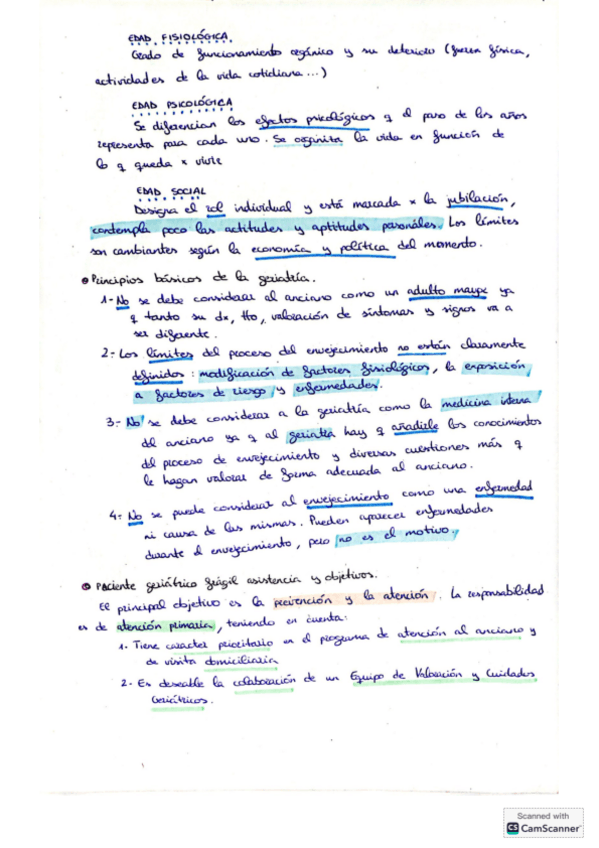 EDAD FISIOLÓGICA
Grado de funcionamiento orgánico y su deterioro (fuerza física,
actividades de la vida cotidiana...)
EDAD PSICOLÓGICA
Se diferencian los efectos psicológicos q el paso de los años
representa para cada uno. Se organiza la vida en función de
lo q queda x vivir
EDAD SOCIAL
Designa el rol individual y está marcada x la jubilación,
contempla poco las actitudes y aptitudes personales. Los límites
son cambiantes según la economía y política del momento.
Principios básicos de la geriatría.
1- No se debe considerar al anciano como un adulto mayor ya
q tanto su dx, tto, valoración de síntomas y signos va a
ser diferente.
2- Los límites del proceso del envejecimiento no están claramente
definidos: modificación de factores fisiológicos, la exposición
a factores de riesgo y enfermedades.
3- No se debe considerar a la geriatría como la medicina interna
del anciano ya q al geriatra hay q añadirle los conocimientos
del proceso de envejecimiento y diversas cuestiones más q
le hagan valorar de forma adecuada al anciano.
4- No se puede considerar al envejecimiento como una enfermedad
ni causa de las mismas. Pueden aparecer enfermedades
durante el envejecimiento, pero no es el motivo.
Paciente geriátrico frágil asistencia y objetivos.
El principal objetivo es la prevención y la atención. La responsabilidad
es de atención primaria, teniendo en cuenta:
1. Tiene carácter prioritario en el programa de atención al anciano y
de visita domiciliaria
2. Es deseable la colaboración de un Equipo de Valoración y Cuidados
Geriátricos.
Scanned with
CS CamScanner